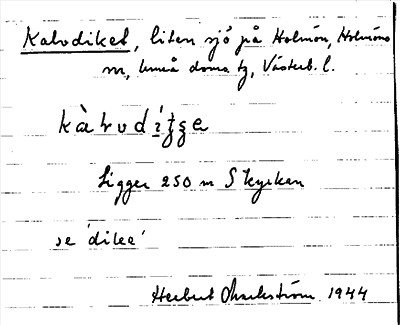 Kalvdiket, liten sjö på Holmön, Holmöns
sn, Umeå doms tg, Västerb. l.
Ligger 250 m S kyrkan
se 'dike'
Herbert Markström 1944